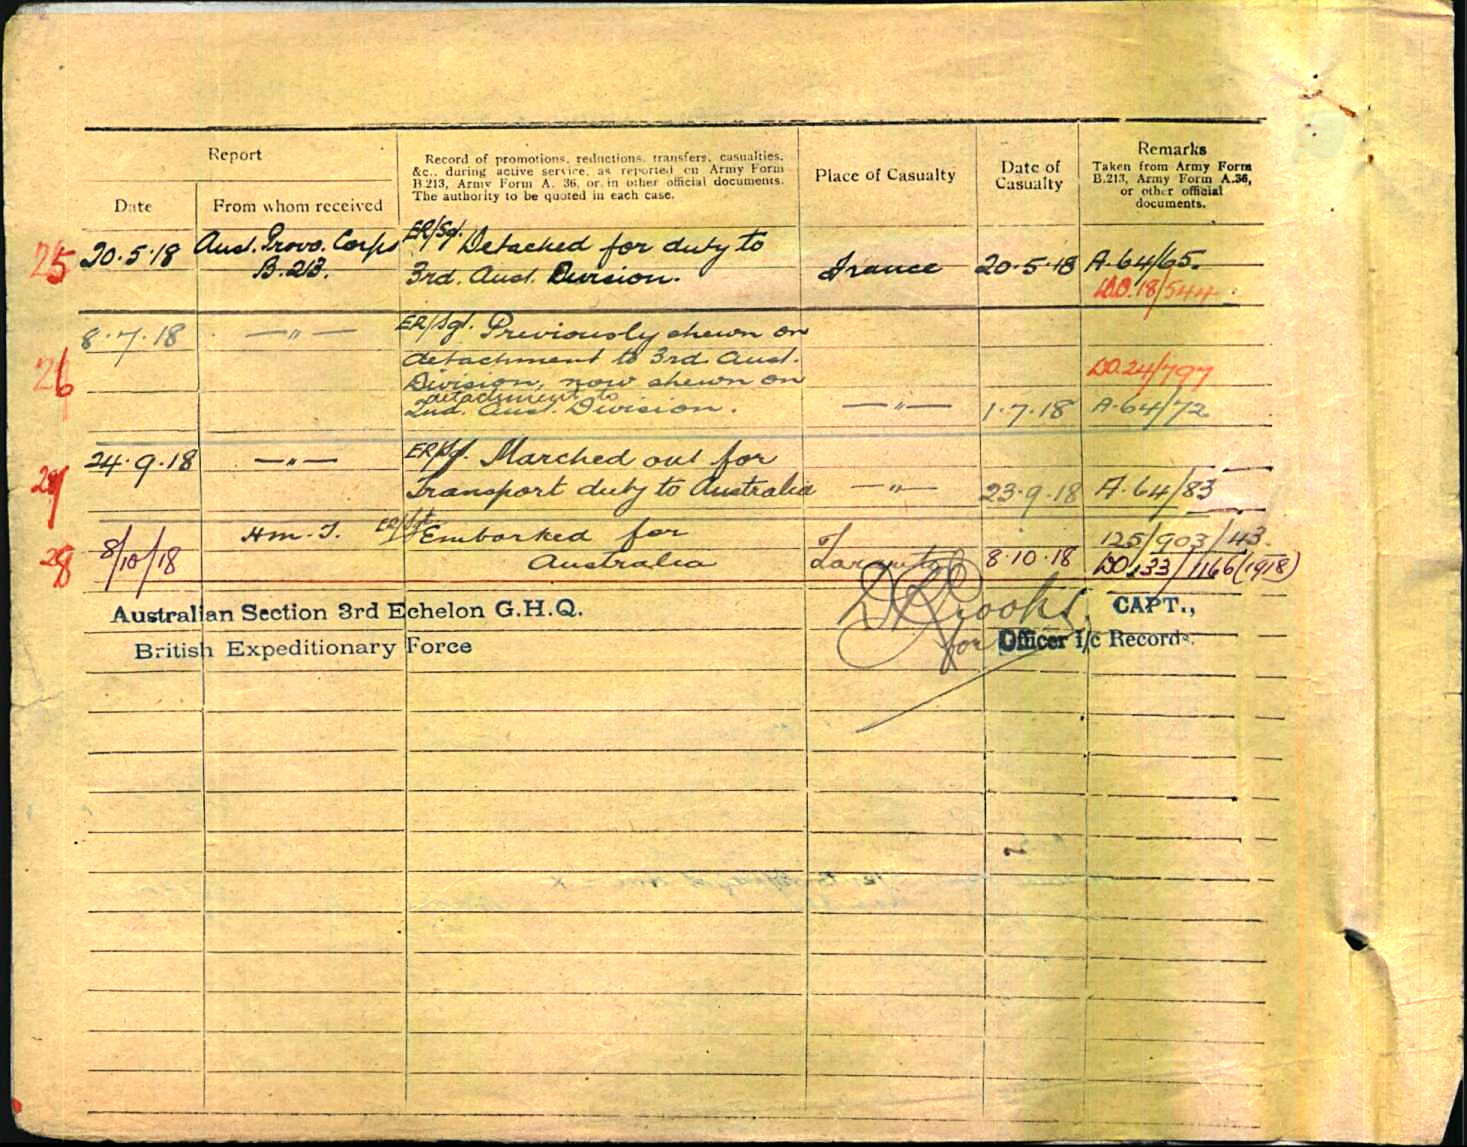 Report
Record of promotions, reductions, transfers, casualties,
&c., during active service, as reported on Army Form
B.213, Army Form A. 36, or in other official documents.
The authority to be quoted in each case.
Place of Casualty
Date of
Casualty
Remarks
Taken from Army Form
B.213, Army Form A.36,
or other official
documents.
Date
From whom received
25
20.5.18
Aust. Provo. Corps
B.213.
ER/Sgt. Detached for duty to
3rd. Aust. Division.
France
20.5.18
A.64/65.
DO.18/544
26
8.7.18
—"—
ER/Sgt. Previously shewn on
detachment to 3rd. Aust.
Division, now shewn on
detachment to
2nd. Aust. Division.
—"—
1.7.18
DO.24/797
A.64/72
27
24.9.18
—"—
ER/Sgt. Marched out for
Transport duty to Australia
—"—
23.9.18
A.64/83
28
8/10/18
H.M.T.
ER/Sgt Embarked for
Australia
Taranto
8.10.18
125/903/43.
DO.133/1166(1918)
Australian Section 3rd Echelon G.H.Q.
British Expeditionary Force
Crooks
CAPT.,
for Officer I/c Records.